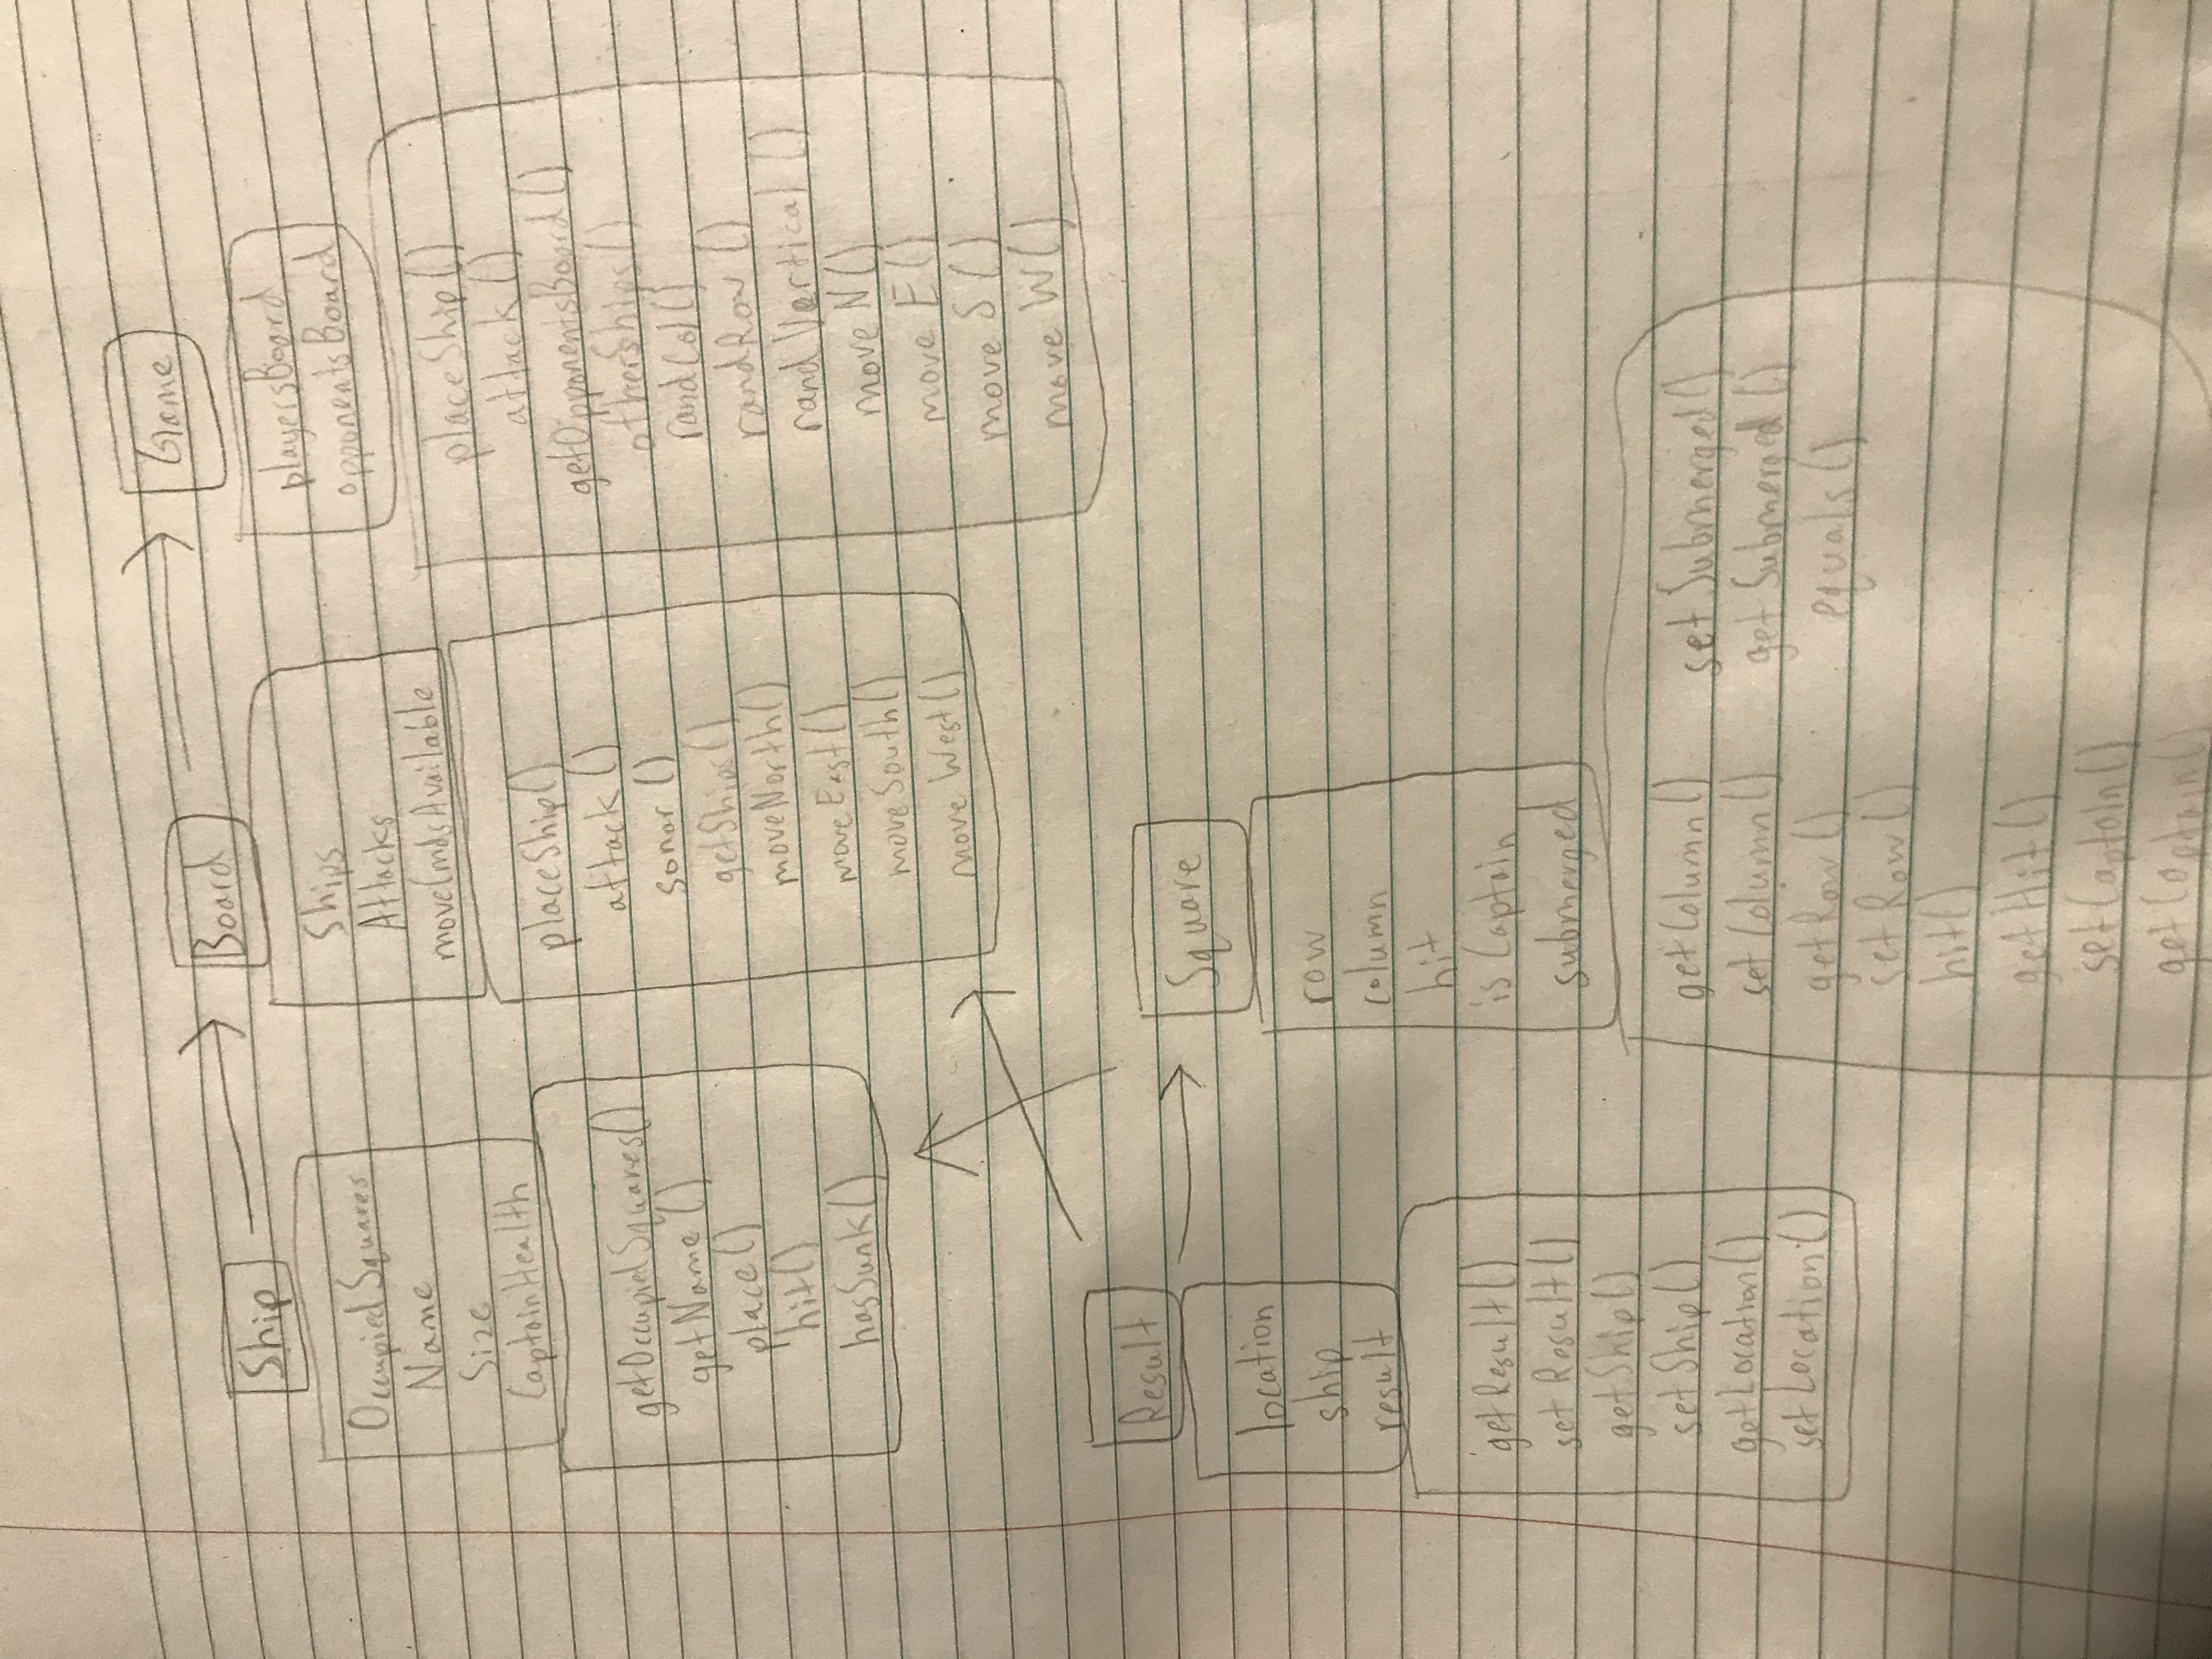 Ship
OccupiedSquares
Name
Size
CaptainHealth
getOccupiedSquares()
getName()
place()
hit()
hasSunk()
Board
Ships
Attacks
moveCmdsAvailable
placeShip()
attack()
sonar()
getShips()
moveNorth()
moveEast()
moveSouth()
move West()
Game
playersBoard
opponentsBoard
placeShip()
attack()
getOpponentsBoard()
otherShips()
randCol()
randRow()
randVertical()
move N()
move E()
move S()
move W()
Result
location
ship
result
getResult()
setResult()
getShip()
setShip()
getLocation()
setLocation()
Square
row
column
hit
isCaptain
submerged
getColumn()
setColumn()
getRow()
setRow()
hit()
getHit()
setCaptain()
getCaptain()
setSubmerged()
getSubmerged()
equals()